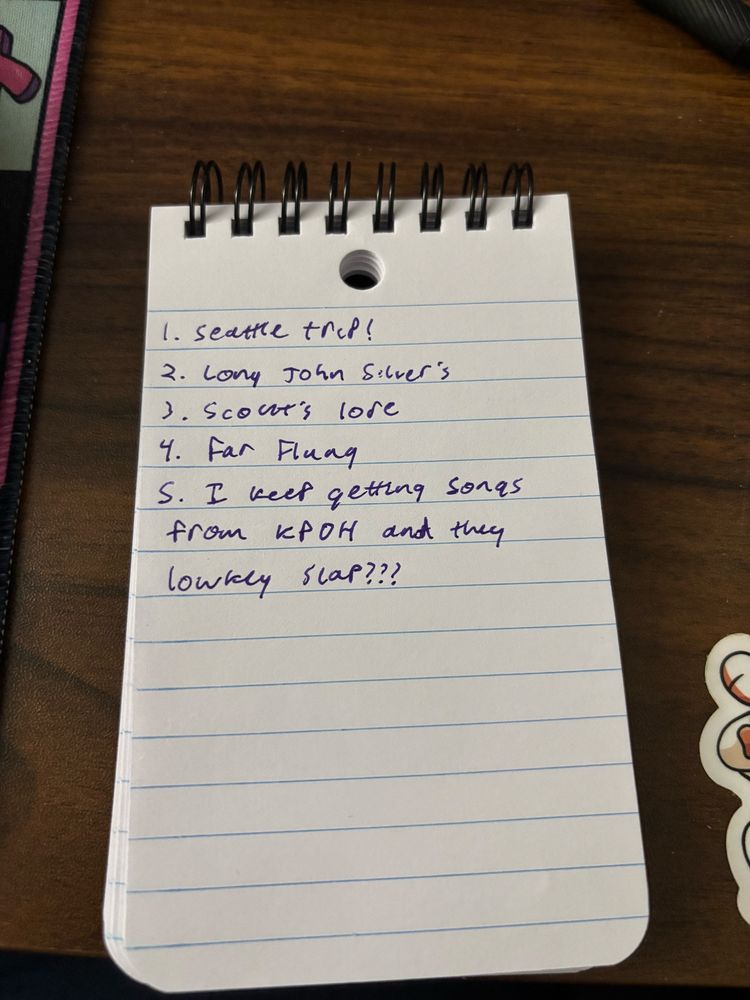 1. Seattle trip!
2. Long John Silver's
3. Scout's lore
4. Far Flung
5. I keep getting songs
from KPDH and they
lowkey slap???